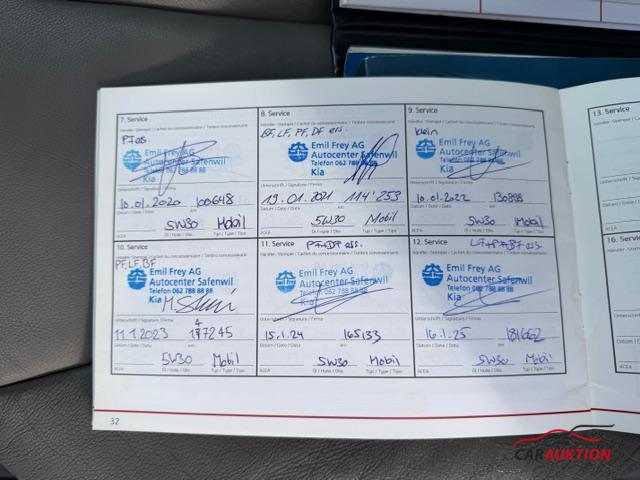 7. Service
Händler-Stempel / Cachet du concessionnaire / Timbro concessionario
Emil Frey AG
Autocenter Safenwil
Telefon 062 788 88 88
Kia
Unterschrift / Signature / Firma
10.01.2020 100648
Datum / Date / Data km
5W30 Mobil
ACEA Öl / Huile / Olio Typ / Type / Tipo
8. Service
Händler-Stempel / Cachet du concessionnaire / Timbro concessionario
BF, LF, PF, DF ers.
Emil Frey AG
Autocenter Safenwil
Telefon 062 788 88 88
Kia
Unterschrift / Signature / Firma
19.01.2021 114'253
Datum / Date / Data km
5W30 Mobil
ACEA Öl / Huile / Olio Typ / Type / Tipo
9. Service
Händler-Stempel / Cachet du concessionnaire / Timbro concessionario
klein
Emil Frey AG
Autocenter Safenwil
Telefon 062 788 88 88
Kia
Unterschrift / Signature / Firma
10.01.2022 130898
Datum / Date / Data km
5W30 Mobil
ACEA Öl / Huile / Olio Typ / Type / Tipo
10. Service
Händler-Stempel / Cachet du concessionnaire / Timbro concessionario
PF, LF, BF
Emil Frey AG
Autocenter Safenwil
Telefon 062 788 88 88
Kia
Unterschrift / Signature / Firma
11.1.2023
Datum / Date / Data km
5W30 Mobil
ACEA Öl / Huile / Olio Typ / Type / Tipo
11. Service PF+DF ers.
Händler-Stempel / Cachet du concessionnaire / Timbro concessionario
Emil Frey AG
Autocenter Safenwil
Telefon 062 788 88 88
Kia
Unterschrift / Signature / Firma
15.1.24 165133
Datum / Date / Data km
5W30 Mobil
ACEA Öl / Huile / Olio Typ / Type / Tipo
12. Service
Händler-Stempel / Cachet du concessionnaire / Timbro concessionario
Emil Frey AG
Autocenter Safenwil
Telefon 062 788 88 88
Kia
Unterschrift / Signature / Firma
16.1.25 181662
Datum / Date / Data km
5W30 Mobil
ACEA Öl / Huile / Olio Typ / Type / Tipo
32
13. Service
16. Service
CARAUKTION